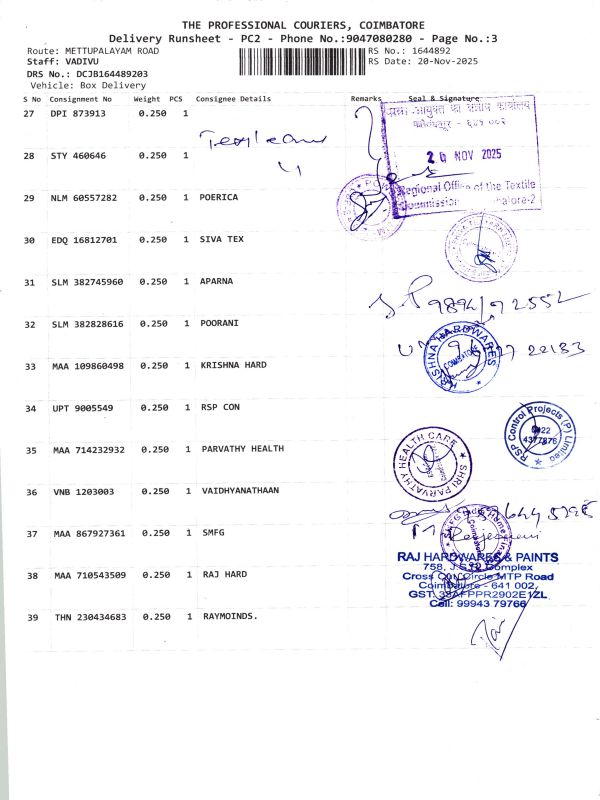 THE PROFESSIONAL COURIERS, COIMBATORE
Delivery Runsheet - PC2 - Phone No.:9047080280 - Page No.:3
Route: METTUPALAYAM ROAD RS No.: 1644892
Staff: VADIVU RS Date: 20-Nov-2025
DRS No.: DCJB164489203
Vehicle: Box Delivery
S No Consignment No Weight PCS Consignee Details Remarks Seal & Signature
27 DPI 873913 0.250 1
28 STY 460646 0.250 1
20 NOV 2025
Regional Office of the Textile
29 NLM 60557282 0.250 1 POERICA
30 EDQ 16812701 0.250 1 SIVA TEX
31 SLM 382745960 0.250 1 APARNA
9894/92552
32 SLM 382828616 0.250 1 POORANI
33 MAA 109860498 0.250 1 KRISHNA HARD
KRISHNA HARDWARES
COIMBATORE
34 UPT 9005549 0.250 1 RSP CON
RSP Control Projects (P) Limited
0422
4377876
35 MAA 714232932 0.250 1 PARVATHY HEALTH
SHRI PARVATHY HEALTH CARE
36 VNB 1203003 0.250 1 VAIDHYANATHAAN
37 MAA 867927361 0.250 1 SMFG
38 MAA 710543509 0.250 1 RAJ HARD
RAJ HARDWARES & PAINTS
758, J.S.R. Complex
Cross Cut Circle MTP Road
Coimbatore - 641 002.
GST. 33AFPPR2902E1ZL
Cell: 99943 79766
39 THN 230434683 0.250 1 RAYMOINDS.